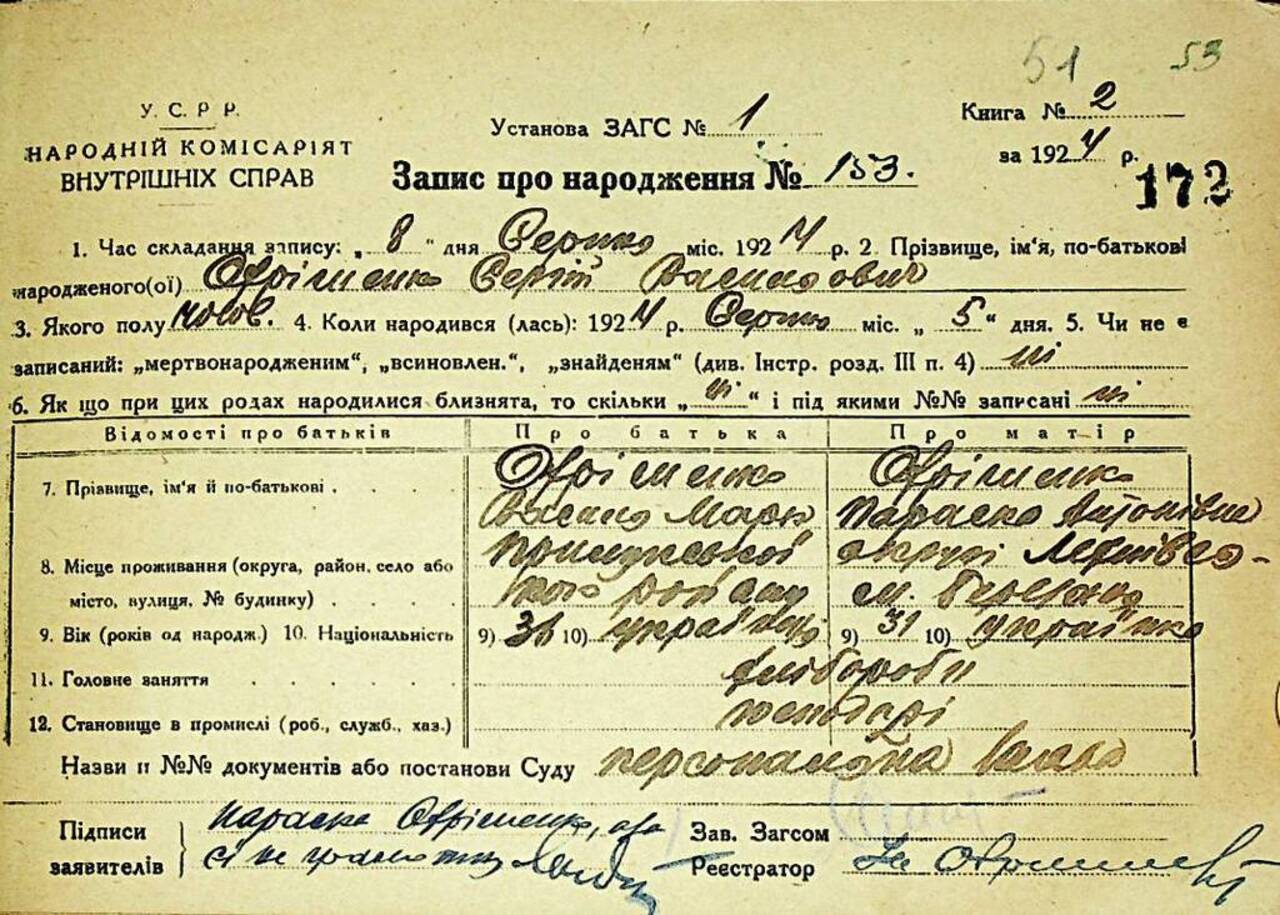 51 53
У. С. Р Р.
НАРОДНІЙ КОМІСАРІЯТ
ВНУТРІШНІХ СПРАВ
Установа ЗАГС № 1
Книга № 2
за 1924 р.
172
Запис про народження № 153.
1. Час складання запису: „ 8 " дня Серпня міс. 1924 р. 2. Прізвище, ім'я, по-батькові
народженого(ої) Охріменко Сергій Васильович
3. Якого полу чолов. 4. Коли народився (лась): 1924 р. Серпня міс. „ 5 " дня. 5. Чи не є
записаний: „мертвонародженим", „всиновлен.", „знайденям" (див. Інстр. розд. III п. 4) ні
6. Як що при цих родах народилися близнята, то скільки „ ні " і під якими №№ записані ні
Відомості про батьків Про батька Про матір
7. Прізвище, ім'я й по-батькові . . . . Охріменко Охріменко
Василь Марк Параска Антонівна
8. Місце проживання (округа, район, село або Прилуцької округи
місто, вулиця, № будинку) . . . . району
9. Вік (років од народж.) 10. Національність 9) 36 10) українець 9) 31 10) українка
11. Головне заняття . . . . . хлібороби
12. Становище в промислі (роб., служб., хаз.) господарі
Назви и №№ документів або постанови Суду персональна
Підписи
заявителів
Параска Охріменко, а за
неграмотну
Зав. Загсом
Реєстратор